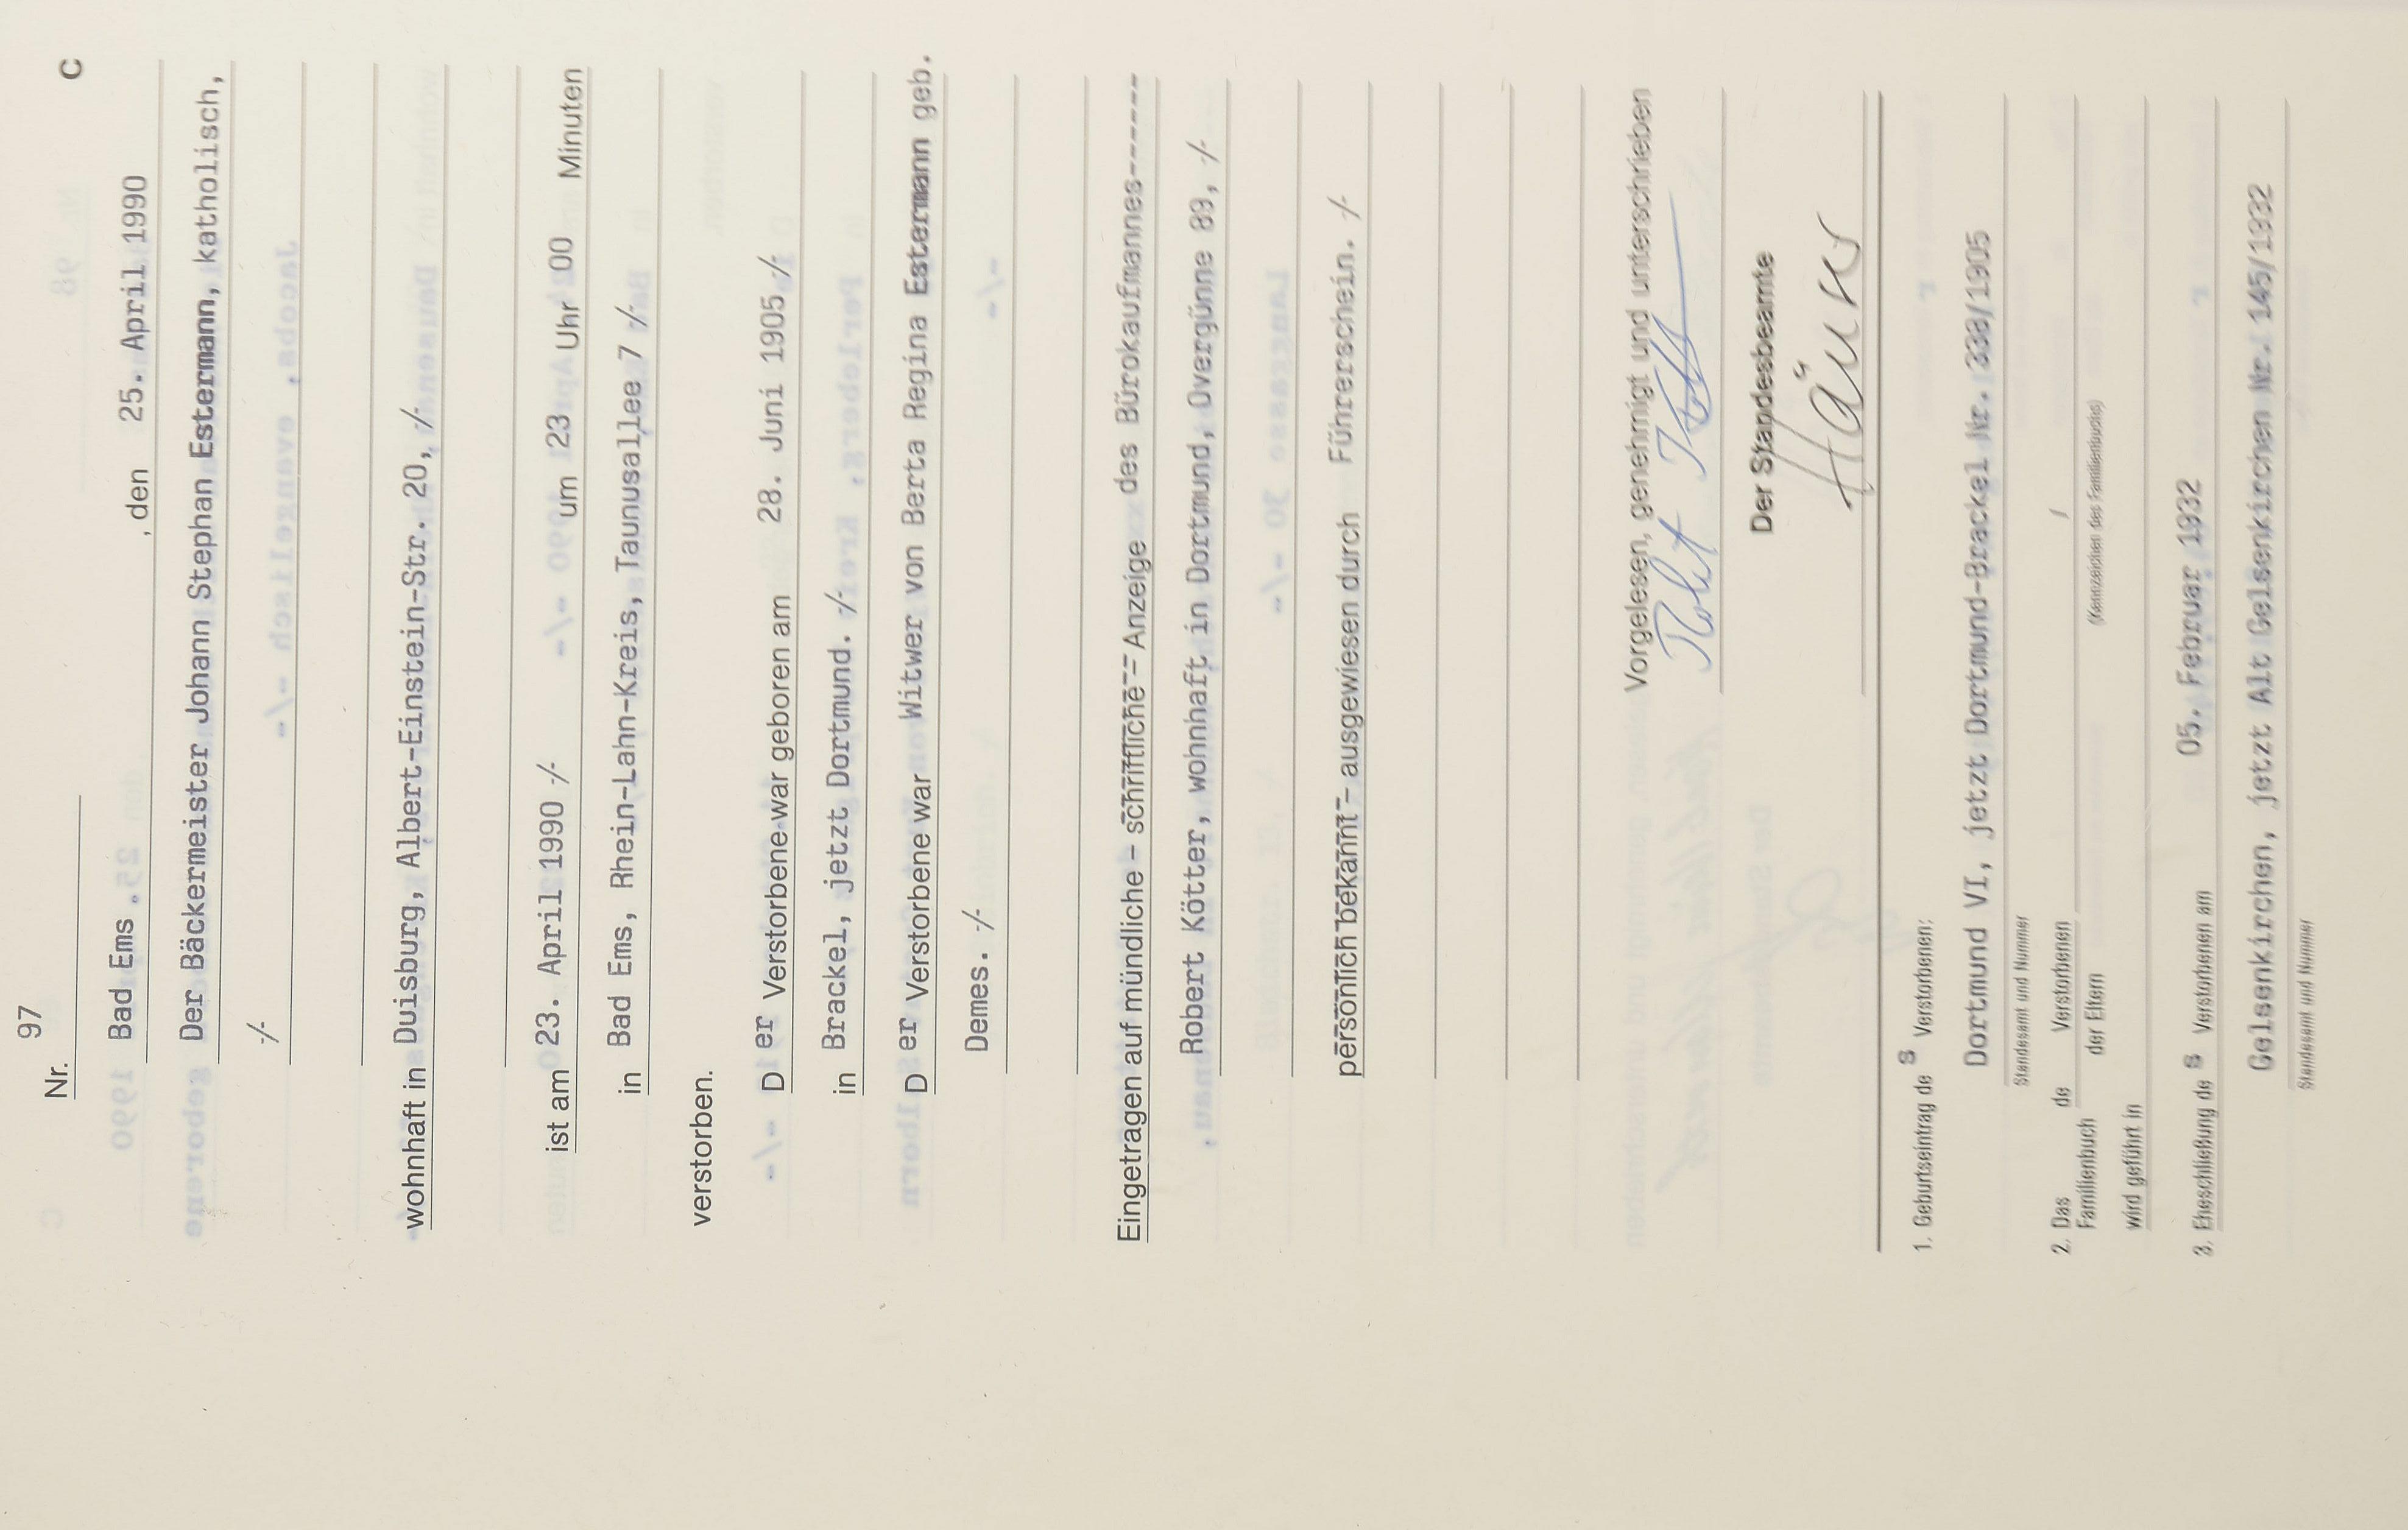 C
Nr. 97
Bad Ems , den 25. April 1990
Der Bäckermeister Johann Stephan Estermann, katholisch,
-/-
wohnhaft in Duisburg, Albert-Einstein-Str. 20, -/-
ist am 23. April 1990 -/- um 23 Uhr 00 Minuten
in Bad Ems, Rhein-Lahn-Kreis, Taunusallee 7 -/-
verstorben.
D er Verstorbene war geboren am 28. Juni 1905 -/-
in Brackel, jetzt Dortmund. -/-
D er Verstorbene war Witwer von Berta Regina Estermann geb.
Demes. -/-
Eingetragen auf mündliche – schriftliche – Anzeige des Bürokaufmannes-------
Robert Kötter, wohnhaft in Dortmund, Overgünne 89, -/-
persönlich bekannt – ausgewiesen durch Führerschein. -/-
Vorgelesen, genehmigt und unterschrieben
Der Standesbeamte
1. Geburtseintrag de s Verstorbenen:
Dortmund VI, jetzt Dortmund-Brackel Nr. 338/1905
Standesamt und Nummer
2. Das de Verstorbenen
Familienbuch der Eltern (Kennzeichen des Familienbuchs)
wird geführt in
3. Eheschließung de s Verstorbenen am 05. Februar 1932
Gelsenkirchen, jetzt Alt Gelsenkirchen Nr. 145/1932
Standesamt und Nummer